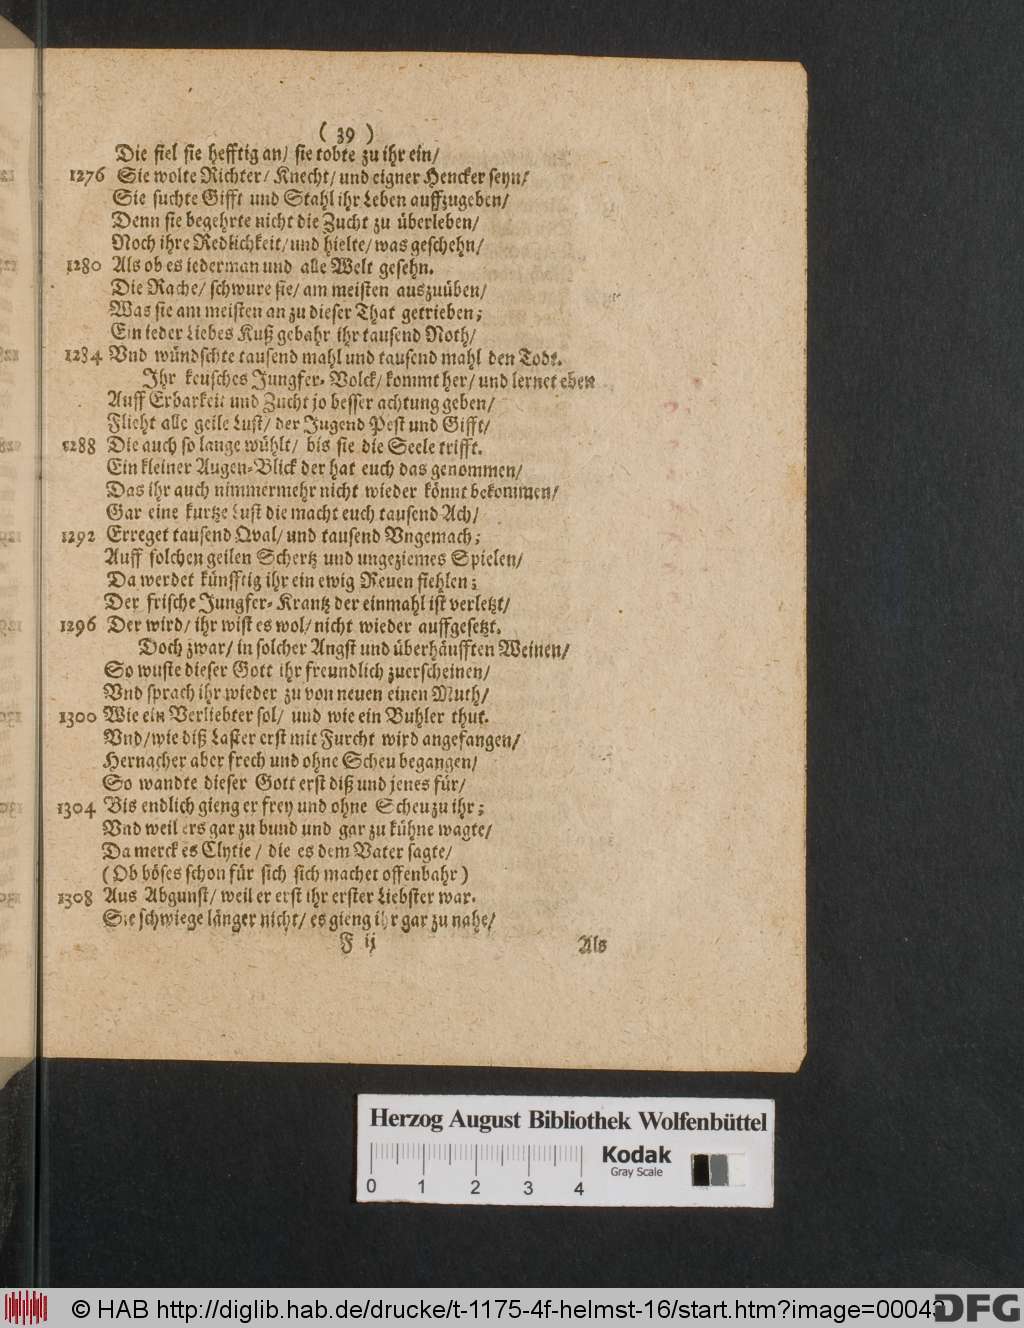 ( 39 )
Die fiel sie hefftig an/ sie tobte zu ihr ein/
1276 Sie wolte Richter/ Knecht/ und eigner Hencker seyn/
Sie suchte Gifft und Stahl ihr Leben auffzugeben/
Denn sie begehrte nicht die Zucht zu überleben/
Noch ihre Redlichkeit/ und hielte/ was geschehn/
1280 Als ob es iederman und alle Welt gesehn.
Die Rache/ schwure sie/ am meisten auszuüben/
Was sie am meisten an zu dieser That getrieben;
Ein ieder Liebes Kuß gebahr ihr tausend Noth/
1284 Vnd wündschte tausend mahl und tausend mahl den Todt.
Ihr keusches Jungfer-Volck/ kommt her/ und lernet eben
Auff Erbarkeit und Zucht jo besser achtung geben/
Flieht alle geile Lust/ der Jugend Pest und Gifft/
1288 Die auch so lange wühlt/ bis sie die Seele trifft.
Ein kleiner Augen-Blick der hat euch das genommen/
Das ihr auch nimmermehr nicht wieder könnt bekommen/
Gar eine kurtze Lust die macht euch tausend Ach/
1292 Erreget tausend Qval/ und tausend Vngemach;
Auff solchen geilen Schertz und ungeziemes Spielen/
Da werdet künfftig ihr ein ewig Reuen fiehlen;
Der frische Jungfer-Krantz der einmahl ist verletzt/
1296 Der wird/ ihr wist es wol/ nicht wieder auffgesetzt.
Doch zwar/ in solcher Angst und überhäufften Weinen/
So wuste dieser Gott ihr freundlich zuerscheinen/
Vnd sprach ihr wieder zu von neuen einen Muth/
1300 Wie ein Verliebter sol/ und wie ein Buhler thut.
Vnd/ wie diß Laster erst mit Furcht wird angefangen/
Hernacher aber frech und ohne Scheu begangen/
So wandte dieser Gott erst diß und jenes für/
1304 Bis endlich gieng er frey und ohne Scheu zu ihr;
Vnd weil ers gar zu bund und gar zu kühne wagte/
Da merckt es Clytie/ die es dem Vater sagte/
(Ob böses schon für sich sich machet offenbahr)
1308 Aus Abgunst/ weil er erst ihr erster Liebster war.
Sie schwiege länger nicht/ es gieng ihr gar zu nahe/
F ij Als
Herzog August Bibliothek Wolfenbüttel
Kodak
Gray Scale
0 1 2 3 4
© HAB http://diglib.hab.de/drucke/t-1175-4f-helmst-16/start.htm?image=00043
DFG